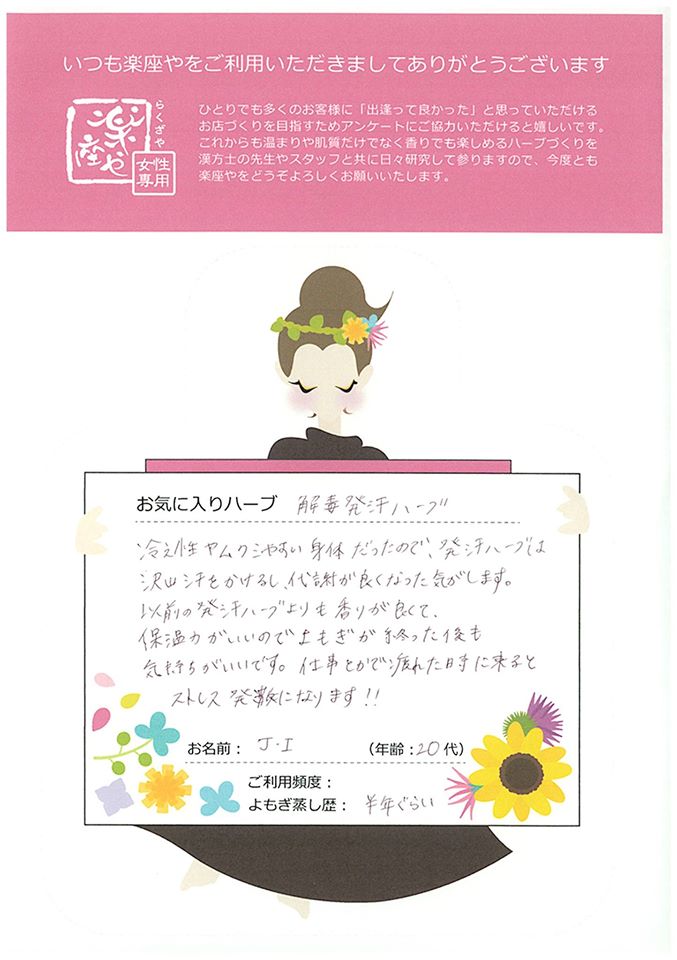 いつも楽座やをご利用いただきましてありがとうございます
らくざや
楽座や
女性専用
ひとりでも多くのお客様に「出逢って良かった」と思っていただける
お店づくりを目指すためアンケートにご協力いただけると嬉しいです。
これからも温まりや肌質だけでなく香りでも楽しめるハーブづくりを
漢方士の先生やスタッフと共に日々研究して参りますので、今度とも
楽座やをどうぞよろしくお願いいたします。
お気に入りハーブ 解毒発汗ハーブ
冷え性やムクミやすい身体だったので、発汗ハーブは
沢山汗をかけるし、代謝が良くなった気がします。
以前の発汗ハーブよりも香りが良くて、
保温力がいいのでよもぎが終った後も
気持ちがいいです。仕事とかで疲れた時に来ると
ストレス発散になります!!
お名前: J・I (年齢:20代)
ご利用頻度:
よもぎ蒸し歴: 半年ぐらい